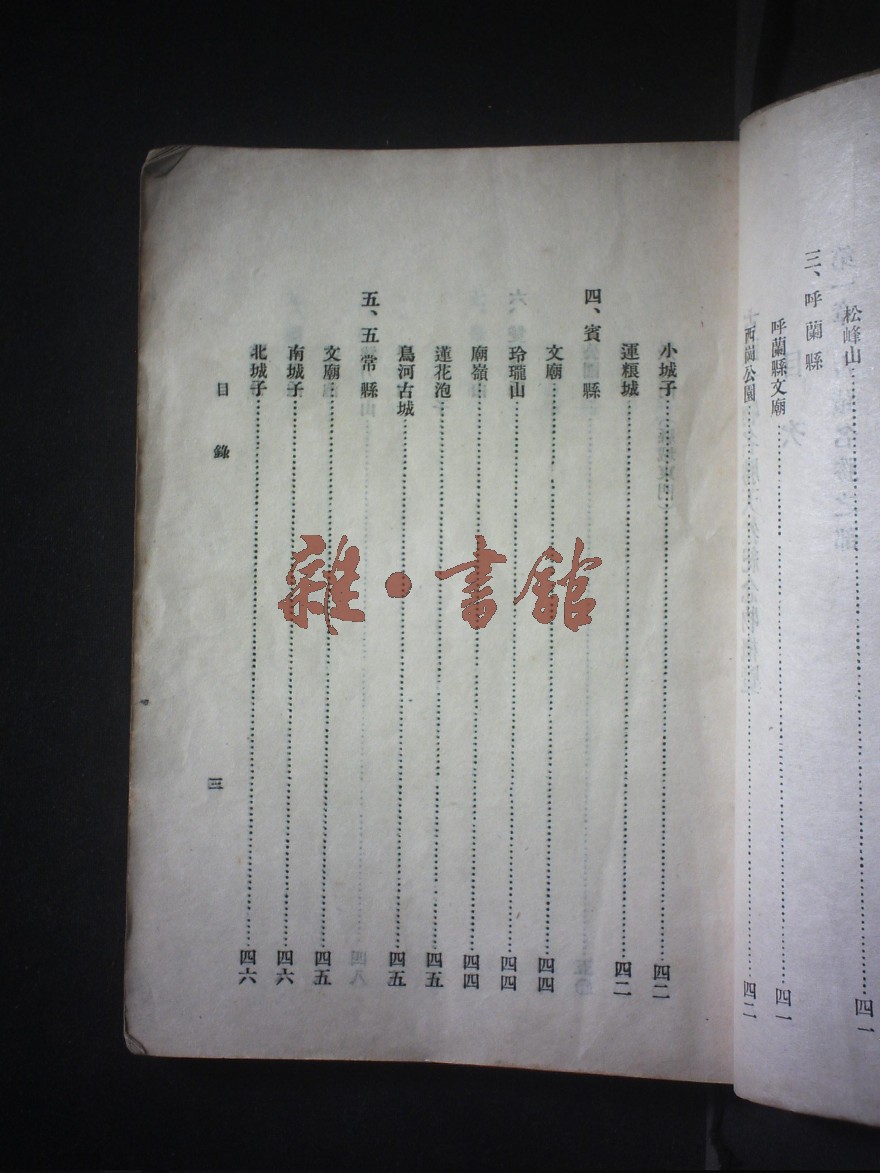 松峰山……四一
三、呼蘭縣
呼蘭縣文廟……四一
西崗公園……四二
小城子……四二
運粮城……四二
四、賓縣
文廟……四四
玲瓏山……四四
廟嶺……四四
蓮花泡……四五
鳥河古城……四五
五、五常縣
文廟……四五
南城子……四六
北城子……四六
目錄
三
雜·書館